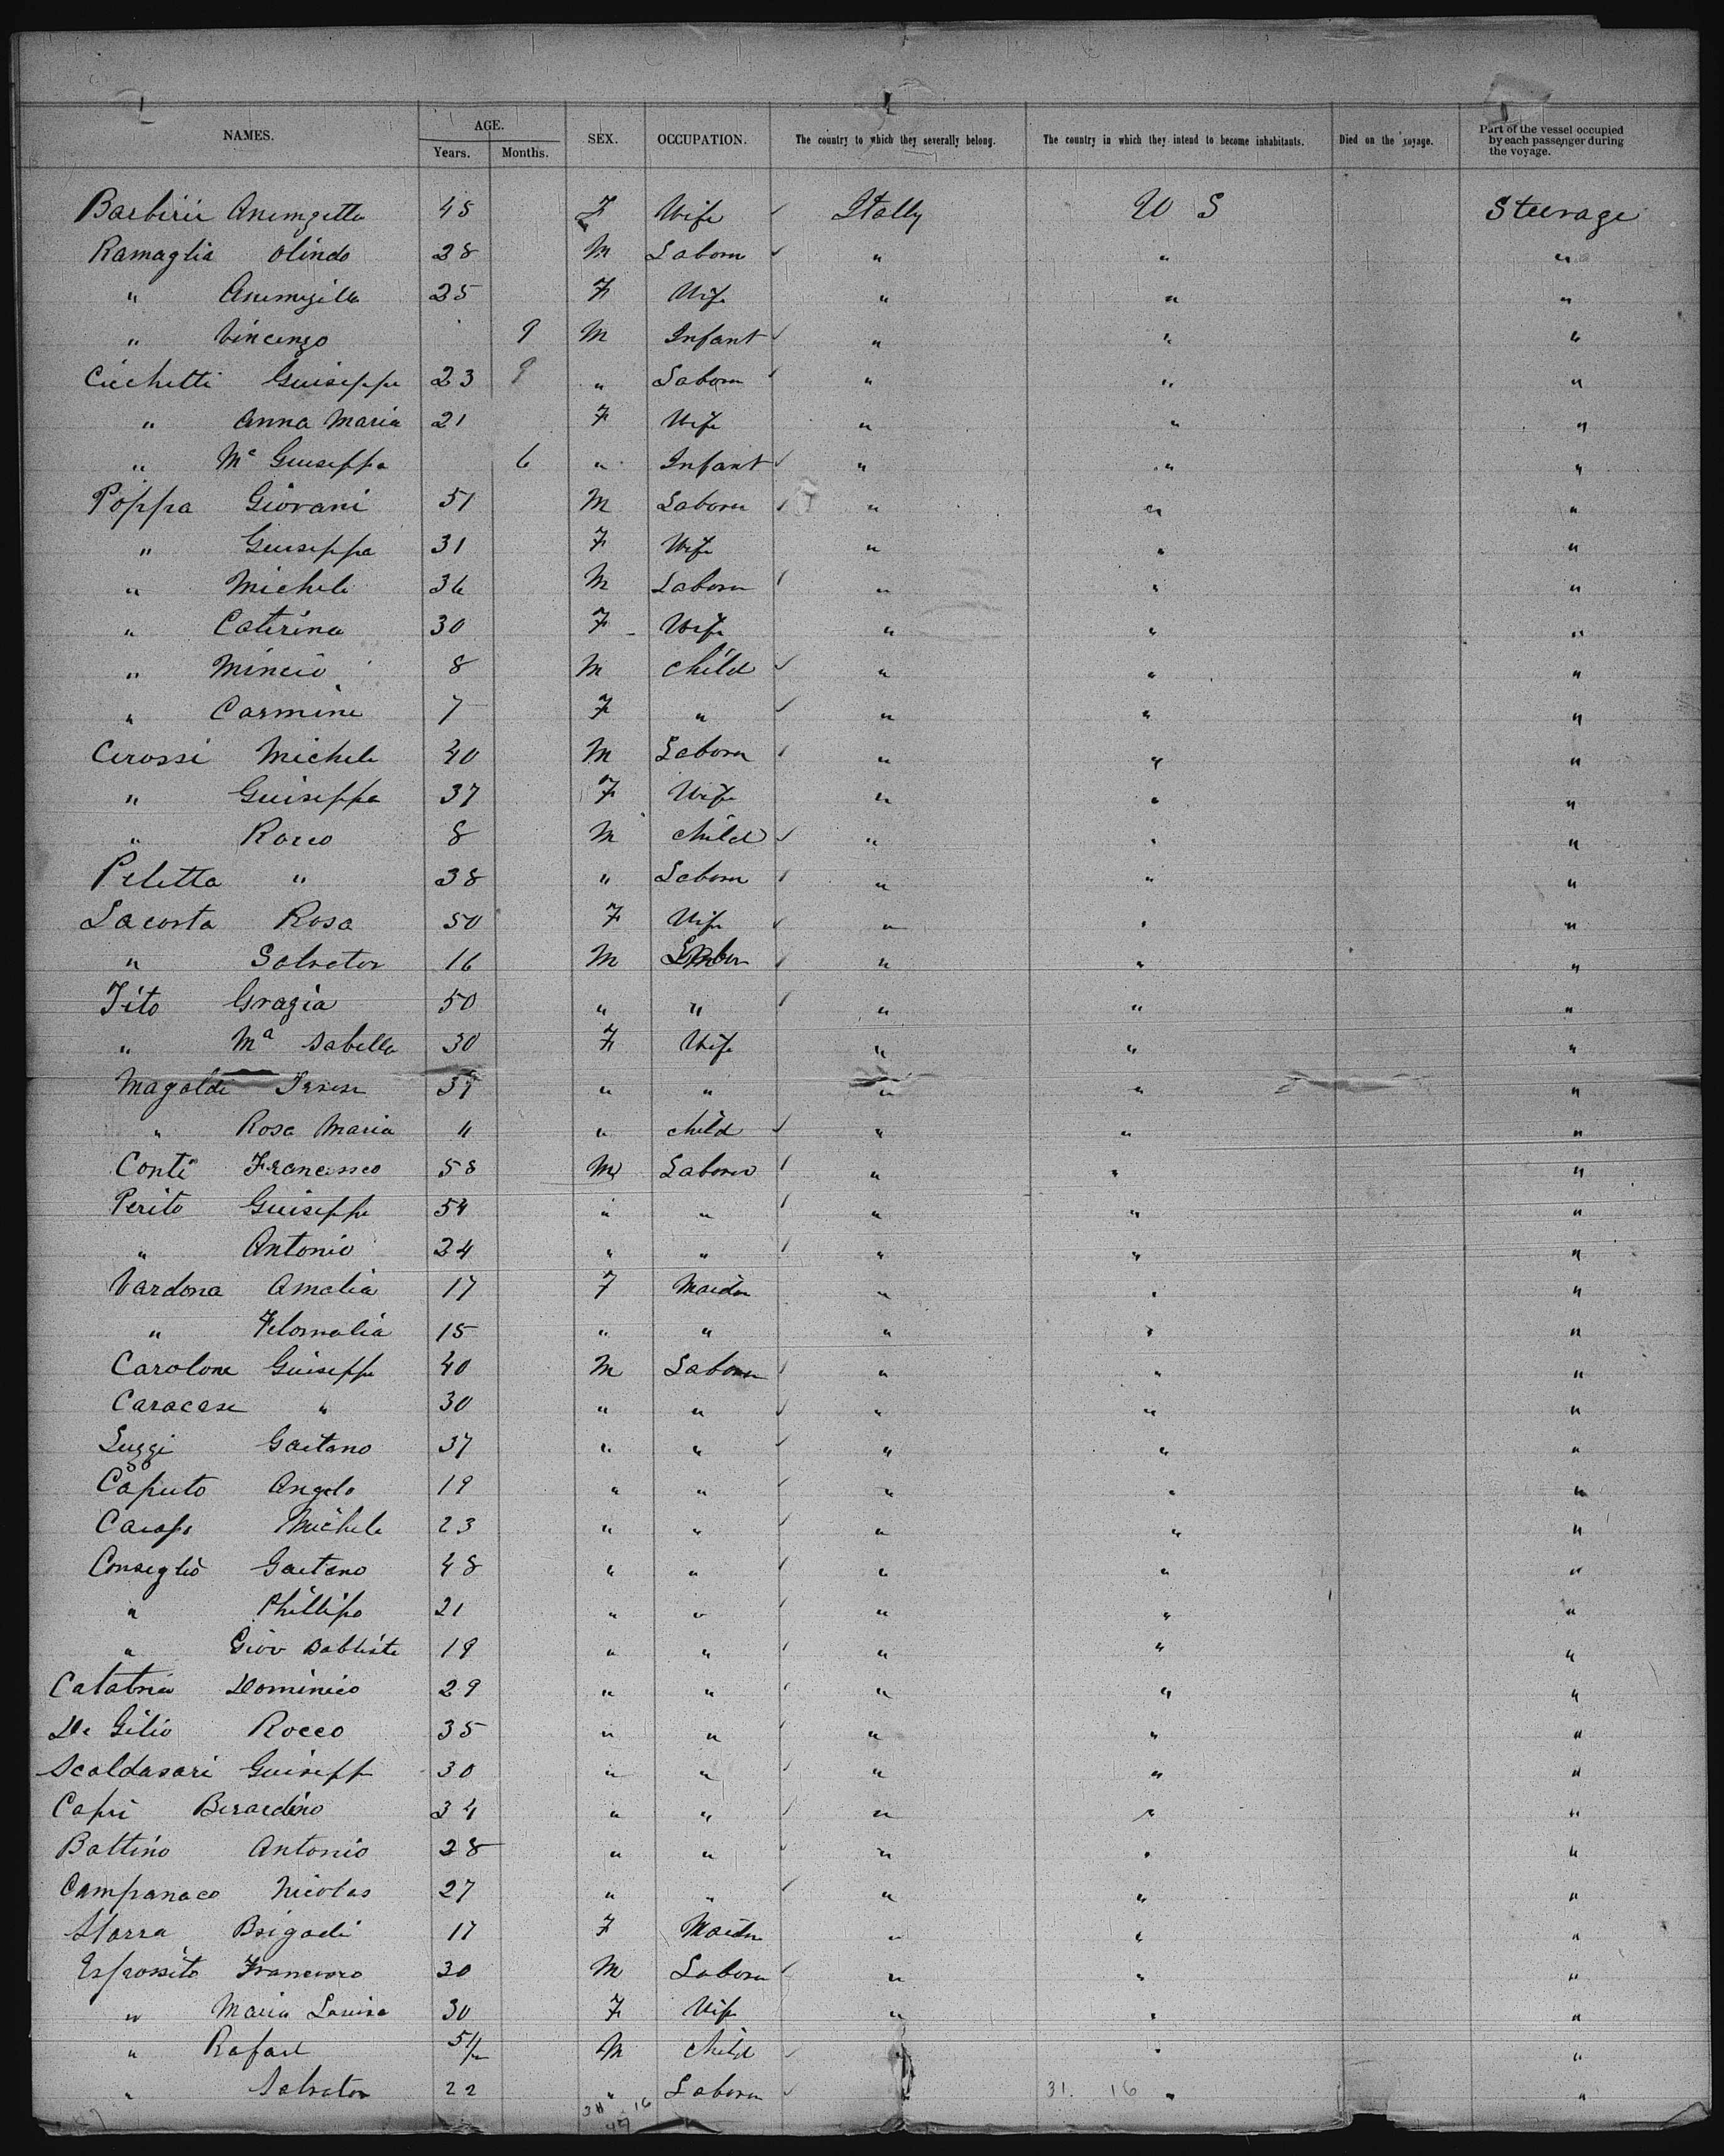 NAMES. AGE. Years. Months. SEX. OCCUPATION. The country to which they severally belong. The country in which they intend to become inhabitants. Died on the voyage. Part of the vessel occupied by each passenger during the voyage.
Barbirii 48 F Wife ✓ Itally U S Steerage
Ramaglia Olindo 28 M Laborer ✓ " " "
" 25 F Wife " " "
" Vincenzo 9 M Infant ✓ " " "
Cicchetti Guiseppe 23 9 " Laborer ✓ " " "
" Anna Maria 21 F Wife " " "
" Ma Giuseppa 6 " Infant ✓ " " "
Poppa Giovani 51 M Laborer ✓ " " "
" Giuseppa 31 F Wife " " "
" Michele 36 M Laborer ✓ " " "
" Caterina 30 F Wife " " "
" Mincio 8 M Child ✓ " " "
" Carmine 7 F " ✓ " " "
Cerossi Michele 40 M Laborer ✓ " " "
" Guiseppa 37 F Wife " " "
" Rocco 8 M Child ✓ " " "
Peletta " 38 " Laborer ✓ " " "
Lacosta Rosa 50 F Wife ✓ " " "
" Salvator 16 M ✓ " " "
Tito Grazia 50 " " ✓ " " "
" Ma Sabella 30 F Wife " " "
Magaldi 39 " " " " "
" Rosa Maria 11 " Child ✓ " " "
Conti Francesco 58 M Laborer ✓ " " "
Perito Guiseppe 54 " " ✓ " " "
" Antonio 24 " " ✓ " " "
Vardona Amalia 17 F Maiden " " "
" Filomalia 15 " " " " "
Carolone Guiseppe 40 M Laborer ✓ " " "
Caracase " 30 " " ✓ " " "
Luggi Gaetano 37 " " ✓ " " "
Caputo Angelo 19 " " ✓ " " "
Michele 23 " " ✓ " " "
Conseglio Gaetano 48 " " ✓ " " "
" Phillipo 21 " " ✓ " " "
" Giov Battista 19 " " ✓ " " "
Calatria Dominico 29 " " ✓ " " "
De Gilio Rocco 35 " " ✓ " " "
Scaldasari Guisepp 30 " " ✓ " " "
Capri Berardino 34 " " ✓ " " "
Battino Antonio 28 " " ✓ " " "
Campanaco Nicolas 27 " " ✓ " " "
Starra Brigadi 17 F Maiden " " "
Espossito Francesco 30 M Laborer ✓ " " "
" Maria Louisa 30 F Wife " " "
" Rafael 5 M Child ✓ " " "
" Salvator 22 " Laborer ✓ " "
31. 16
16
47